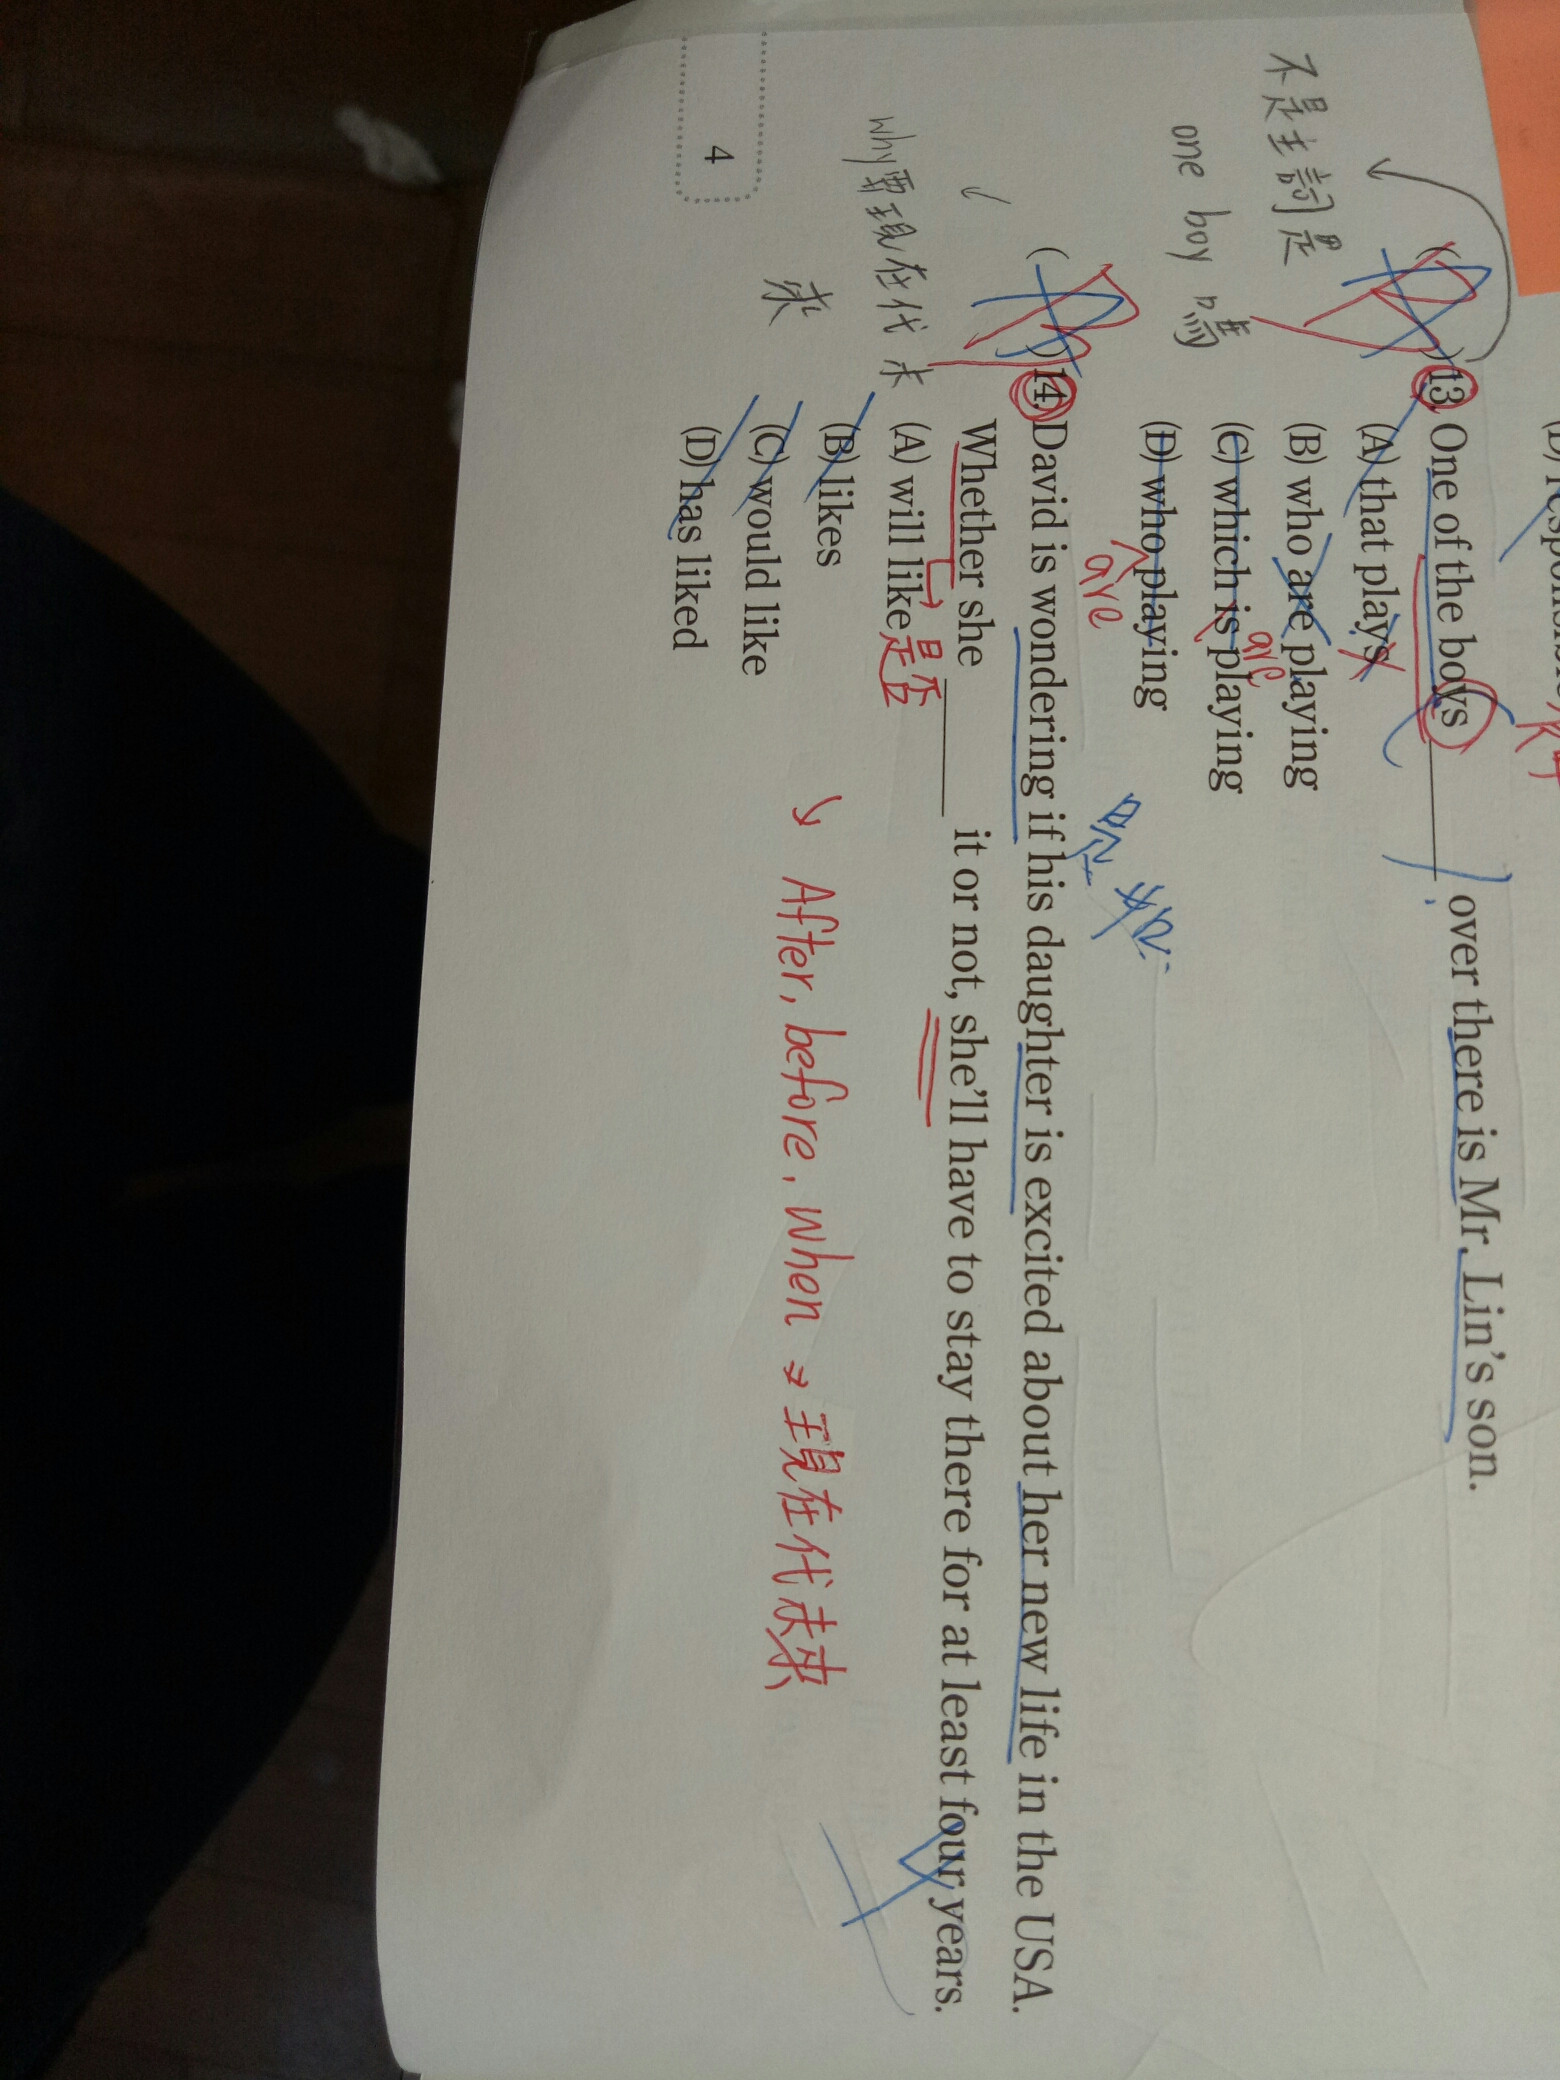 不是主詞是
one boy 嗎
13. One of the boys ______ over there is Mr. Lin's son.
(A) that plays
(B) who are playing
(C) which is playing
are
(D) who playing
are
14. David is wondering if his daughter is excited about her new life in the USA.
Whether she ______ it or not, she'll have to stay there for at least four years.
是否
(A) will like
(B) likes
(C) would like
(D) has liked
why要現在代未
來
↳ After, before, when → 現在代未來
4